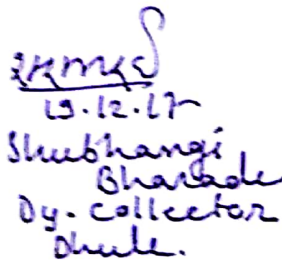 19.12.17
Shubhangi
Bharade
Dy. Collector
Dhule.